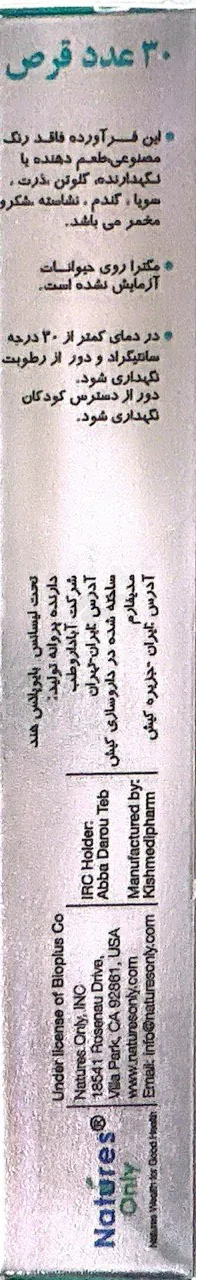 ۳۰ عدد قرص
این فـــرآورده فاقـد رنگ
مصنوعی،طعم دهنده یا
نگهدارنده، گلوتن ،ذرت ،
سویا ، گندم ، نشاسته ،شکرو
مخمر می باشد.
مکترا روی حیوانـــات
آزمایش نشده است.
در دمای کمتر از ۳۰ درجه
سانتیگراد و دور از رطوبت
نگهداری شود.
دور از دسترس کودکان
نگهداری شود.
تحت لیسانس بایوپلاس هند
دارنده پروانه تولید:
شرکت آباداروطب
آدرس :ایران-تهران
ساخته شده در داروسازی کیش
مدیفارم
آدرس :ایران -جزیره کیش
IRC Holder:
Abba Darou Teb
Manufactured by:
Kishmedipharm
Under license of Bioplus Co
Natures Only, INC
18541 Rosenau Drive,
Villa Park, CA 92861, USA
www.naturesonly.com
Email: info@naturesonly.com
Natures®
Only
Natures Wealth for Good Health